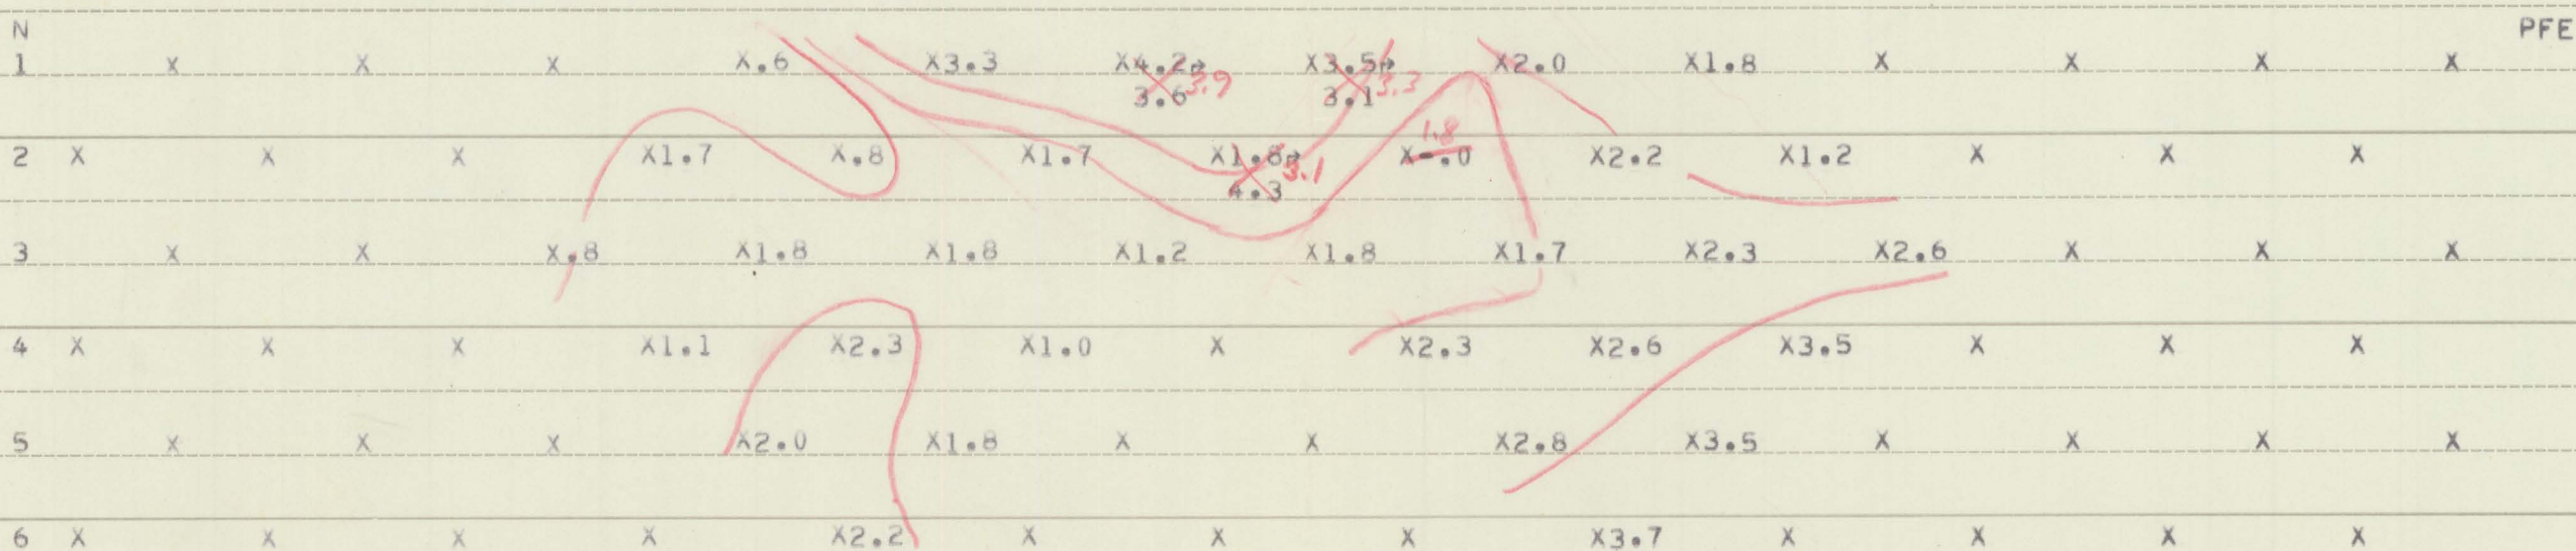 N PFE
1 X X X X.6 X3.3 X4.2R 3.9 X3.5R 3.3 X2.0 X1.8 X X X X
3.6 3.1
1.8
2 X X X X1.7 X.8 X1.7 X1.8R 3.1 X-.0 X2.2 X1.2 X X X
4.3
3 X X X.8 X1.8 X1.8 X1.2 X1.8 X1.7 X2.3 X2.6 X X X
4 X X X X1.1 X2.3 X1.0 X X2.3 X2.6 X3.5 X X X
5 X X X X2.0 X1.8 X X X2.8 X3.5 X X X X
6 X X X X X2.2 X X X X3.7 X X X X